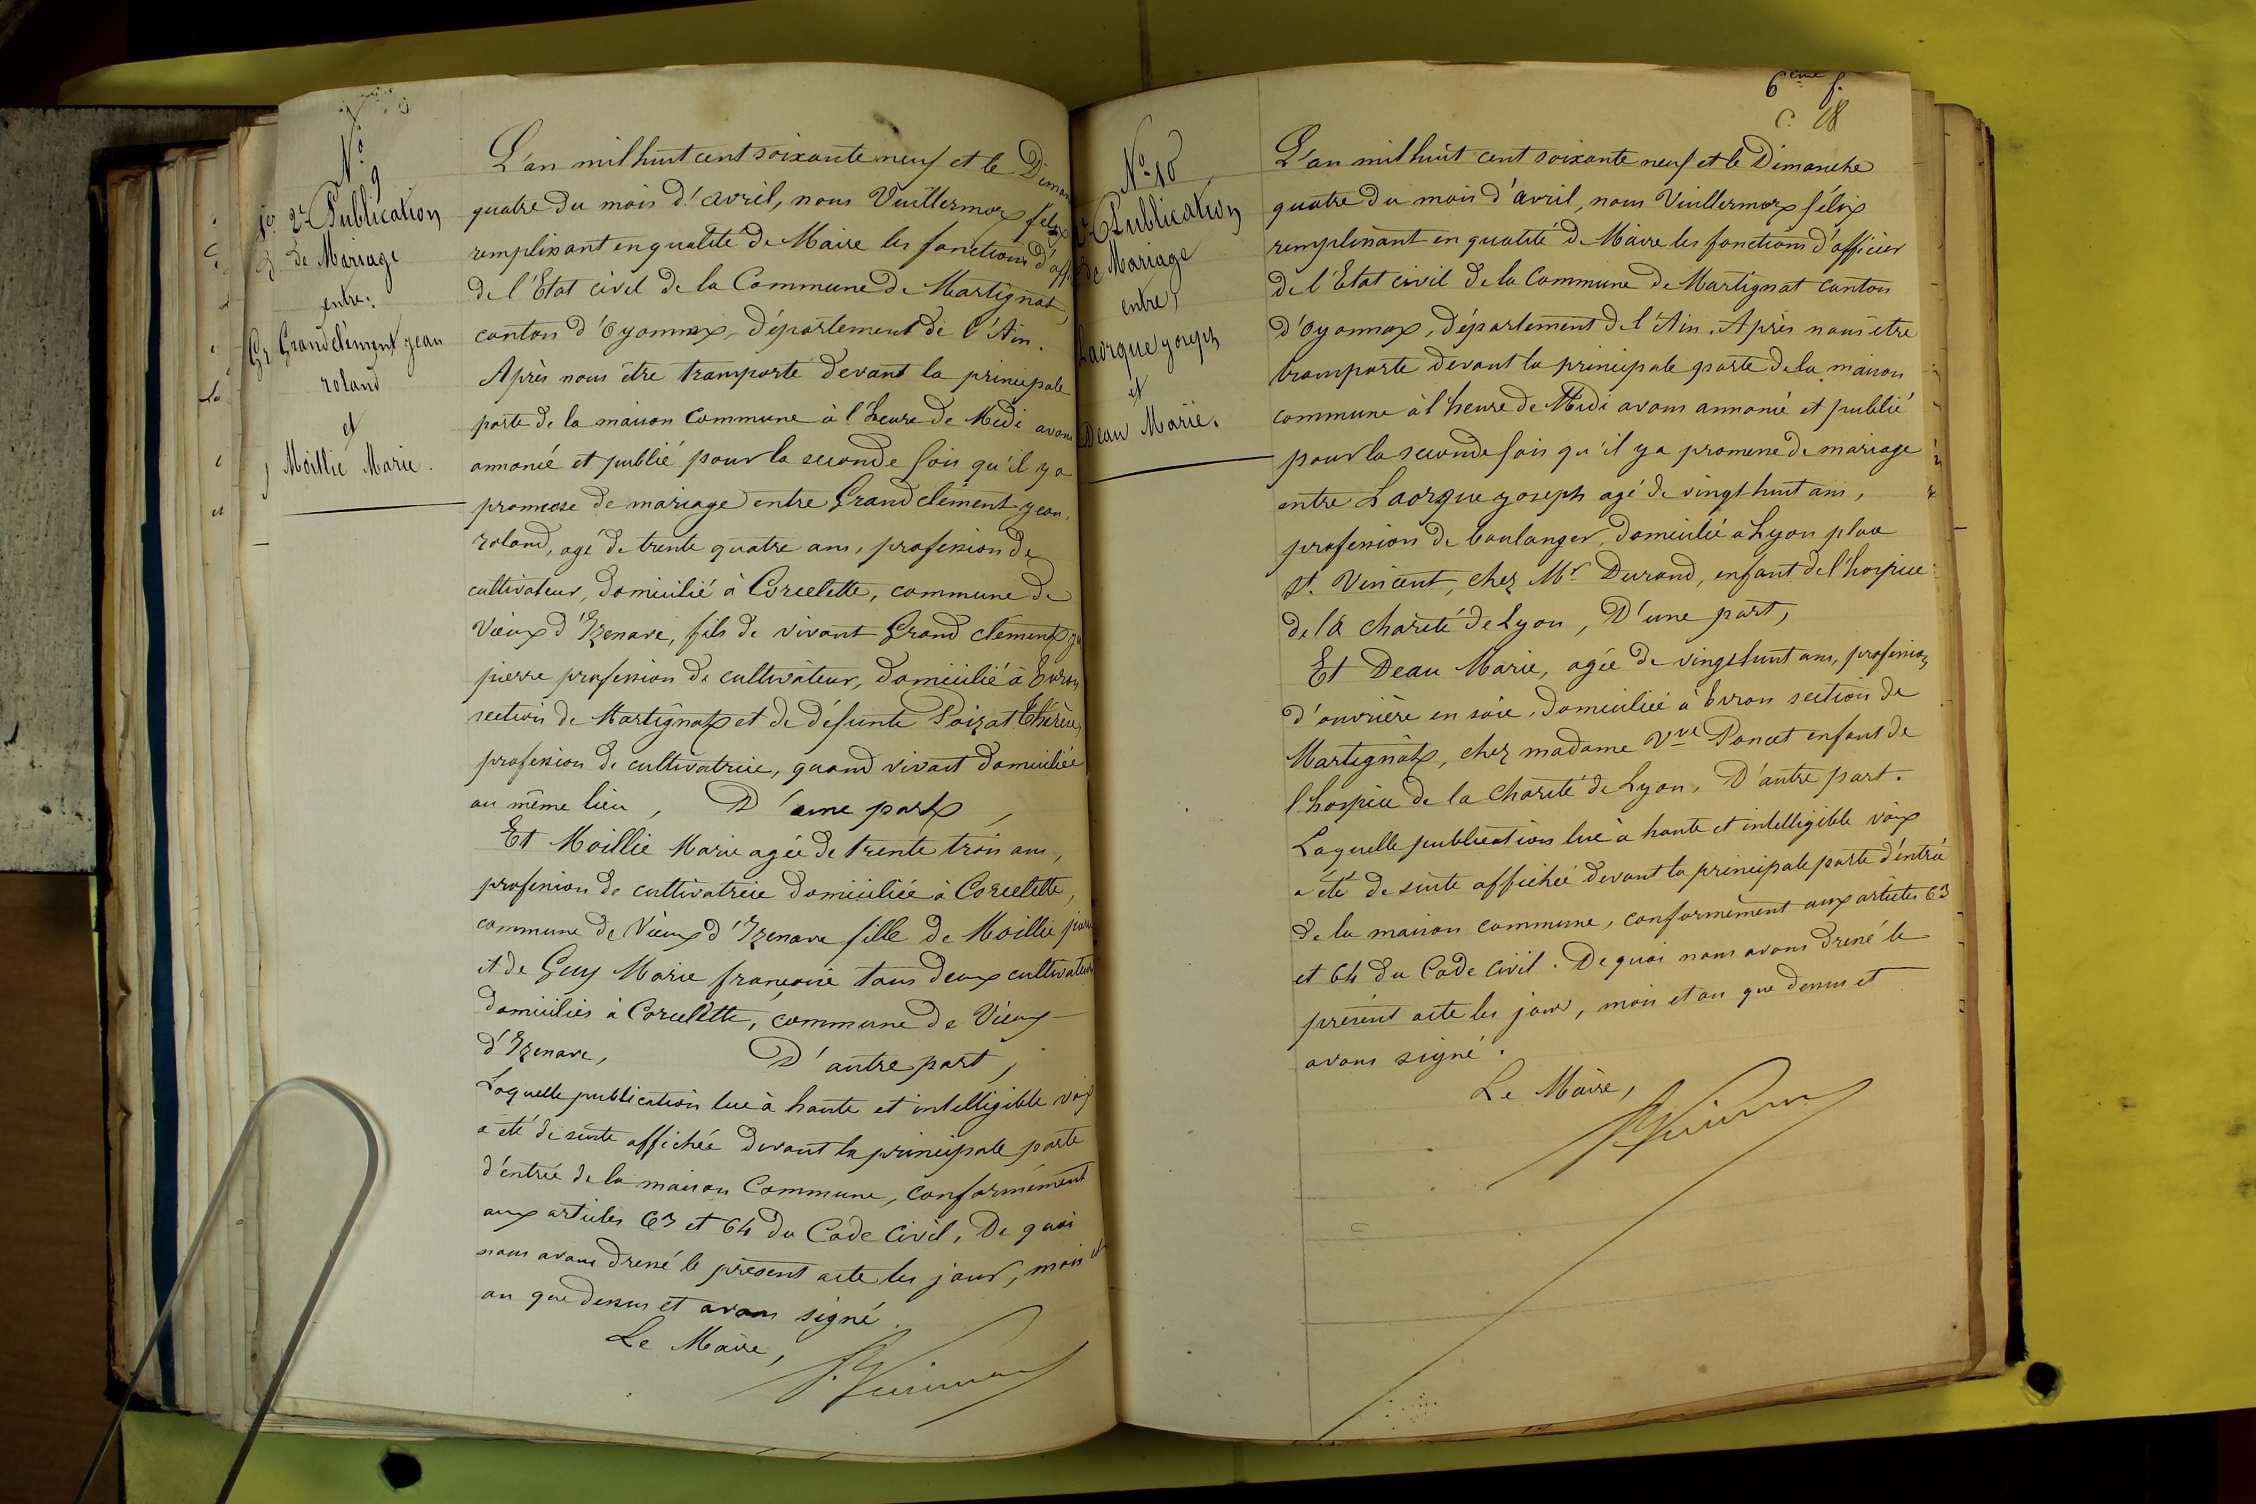 No
9
2e Publication
de Mariage
entre:
Grandclément jean
roland
et
Moillie Marie.
L'an mil huit cent soixante neuf et le Diman
quatre du mois d'avril, nous Vuillermoz félix
remplissant en qualité de Maire les fonctions d'off
de l'Etat civil de la Commune de Martignat,
canton d'Oyonnax, département de l'Ain.
Après nous être transporté devant la principale
porte de la maison commune à l'heure de Midi avons
annoncé et publié pour la seconde fois qu'il y a
promesse de mariage entre Grandclément jean,
roland, agé de trente quatre ans, profession de
cultivateur, domicilié à Corcelette, commune de
Vieux d'Izenave, fils de vivant Grand clément
pierre profession de cultivateur, domicilié à Evron
section de Martignat et de défunte Poizat Thérèse,
profession de cultivatrice, quand vivait domiciliée
au même lieu, D'une part,
Et Moillie Marie agée de trente trois ans,
profession de cultivatrice domiciliée à Corcelette,
commune de Vieux d'Izenave fille de Moillie
et de Guy Marie françoise tous deux cultivateurs
domiciliés à Corcelette, commune de Vieux
d'Izenave, D'autre part,
Laquelle publication lue à haute et intelligible voix
a été de suite affichée devant la principale porte
d'entrée de la maison Commune, conformément
aux articles 63 et 64 du Code Civil, De quoi
nous avons dressé le présent acte les jour, mois et
an que dessus et avons signé.
Le Maire,
6eme f.
No 10
2e Publication
de Mariage
entre,
Laorque joseph
et
Deau Marie.
L'an mil huit cent soixante neuf et le Dimanche
quatre du mois d'avril, nous Vuillermoz félix
remplissant en qualité de Maire les fonctions d'officier
de l'Etat civil de la Commune de Martignat canton
d'Oyonnax, département de l'Ain. Après nous etre
transporté devant la principale porte de la maison
commune à l'heure de Midi avons annoncé et publié
pour la seconde fois qu'il y a promesse de mariage
entre Laorque joseph agé de vingt huit ans,
profession de boulanger, domicilié à Lyon place
St. Vincent, chez Mr Durand, enfant de l'hospice
de la charité de Lyon, D'une part,
Et Deau Marie, agée de vingt huit ans, profession
d'ouvrière en soie, domiciliée à Evron section de
Martignat, chez madame Vve Poncet enfant de
l'hospice de la charité de Lyon, D'autre part.
Laquelle publication lue à haute et intelligible voix
a été de suite affichée devant la principale porte d'entrée
de la maison commune, conformément aux articles 63
et 64 du Code Civil. De quoi nous avons dressé le
présent acte les jour, mois et an que dessus et
avons signé.
Le Maire,